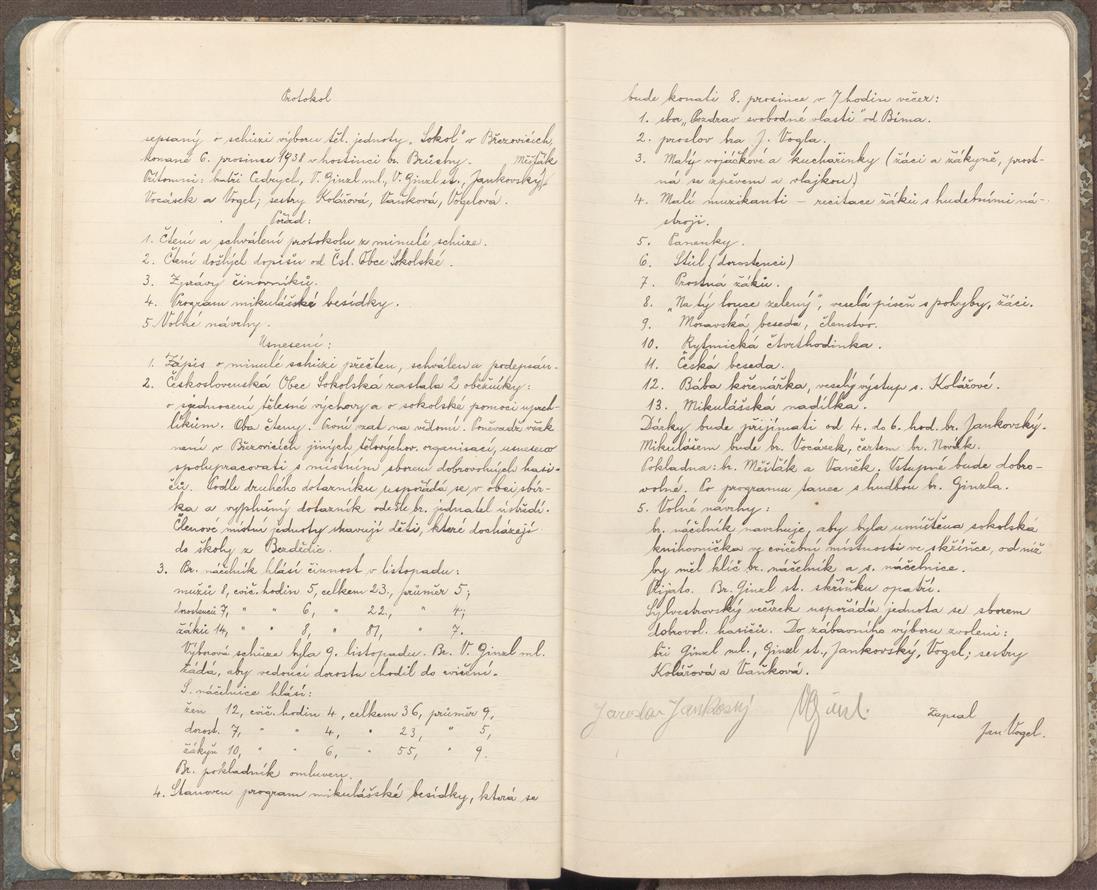 Protokol
sepsaný o schůzi výboru těl. jednoty „Sokol" v Březovicích,
konané 6. prosince 1938 v hostinci br. Brůchy. Měšťák
Přítomni: bratři Cedrych, V. Ginzl ml., V. Ginzl st., Jankovský,
Vocásek a Vogel; sestry Kolářová, Vaňková, Vogelová.
Pořad:
1. Čtení a schválení protokolu z minulé schůze.
2. Čtení došlých dopisů od Čsl. Obce Sokolské.
3. Zprávy činovníků.
4. Program mikulášské besídky.
5. Volné návrhy.
Usnesení:
1. Zápis o minulé schůzi přečten, schválen a podepsán.
2. Československá Obec Sokolská zaslala 2 oběžníky:
o sjednocení tělesné výchovy a o sokolské pomoci uprch-
líkům. Oba čteny. První vzat na vědomí. Poněvadž však
není v Březovicích jiných tělovýchov. organisací, usneseno
spolupracovati s místním sborem dobrovolných hasi-
čů. Podle druhého dotazníku uspořádá se v obci sbír-
ka a vyplněný dotazník odešle br. jednatel ústředí.
Členové místní jednoty stravují děti, které docházejí
do školy z Bezdědic.
3. Br. náčelník hlásí činnost v listopadu:
mužů 8, cvič. hodin 5, celkem 23, průměr 5;
dorostenců 7, " " 6, " 22, " 4;
žáků 14, " " 8, " 81, " 7.
Výborová schůze byla 9. listopadu. Br. V. Ginzl ml.
žádá, aby vedoucí dorostu chodil do cvičení.
S. náčelnice hlásí:
žen 12, cvič. hodin 4, celkem 36, průměr 9,
dorost. 7, " " 4, " 23, " 5,
žákyň 10, " " 6, " 55, " 9.
Br. pokladník omluven.
4. Stanoven program mikulášské besídky, která se
bude konati 8. prosince v 7 hodin večer:
1. sbor „Pozdrav svobodné vlasti" od Bíma.
2. proslov bra J. Vogla.
3. Malý vojáčkové a kuchařinky (žáci a žákyně, prost-
ná se zpěvem a vlajkou)
4. Malí muzikanti – recitace žáků s hudebními ná-
stroji.
5. Panenky.
6. Stůl (dorostenci)
7. Prostná žáků.
8. „Na tý louce zelený", veselá píseň s pohyby, žáci.
9. Moravská beseda, členstvo.
10. Rytmická čtvrthodinka.
11. Česká beseda.
12. Bába kořenářka, veselý výstup s. Kolářové.
13. Mikulášská nadílka.
Dárky bude přijímati od 4. do 6. hod. br. Jankovský.
Mikulášem bude br. Vocásek, čertem br. Novák.
Pokladna: br. Měšťák a Vaněk. Vstupné bude dobro-
volné. Po programu tanec s hudbou br. Ginzla.
5. Volné návrhy:
br. náčelník navrhuje, aby byla umístěna sokolská
knihovnička ve cvičební místnosti ve skříňce, od níž
by měl klíč br. náčelník a s. náčelnice.
Přijato. Br. Ginzl st. skříňku opatří.
Sylvestrovský večírek uspořádá jednota se sborem
dobrovol. hasičů. Do zábavního výboru zvoleni:
bři Ginzl ml., Ginzl st., Jankovský, Vogel; sestry
Kolářová a Vaňková.
Jaroslav Jankovský VGinzl. Zapsal
Jan Vogel.